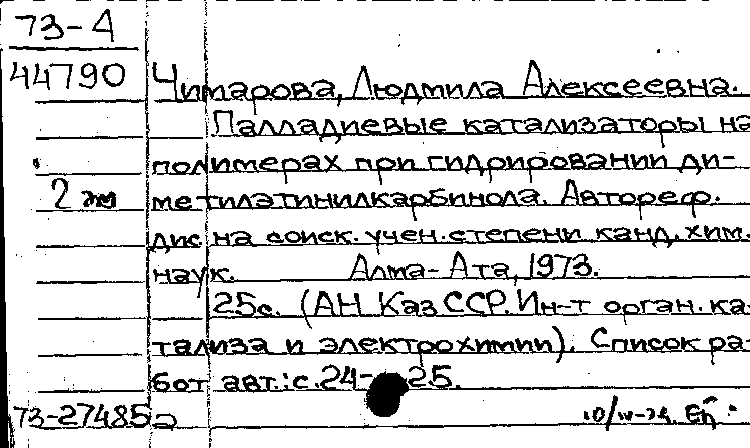 73-4
44790
Чимарова, Людмила Алексеевна.
Палладиевые катализаторы на
полимерах при гидрировании ди-
2 эк
метилэтинилкарбинола. Автореф.
дис на соиск. учен. степени канд. хим.
наук. Алма-Ата, 1973.
25с. (АН КазССР. Ин-т орган. ка-
тализа и электрохимии). Список ра-
бот авт.: с. 24-25.
73-27485